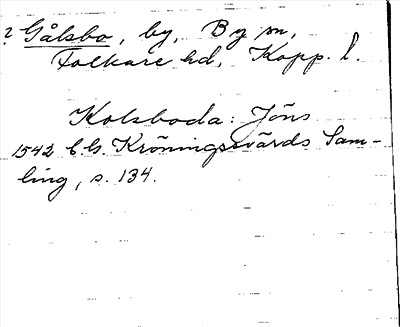 ? Gålsbo, by, By sn,
Folkare hd, Kopp. l.
Kolsboda: Jöns
1542 C.G. Kröningssvärds Sam-
ling, s. 134.